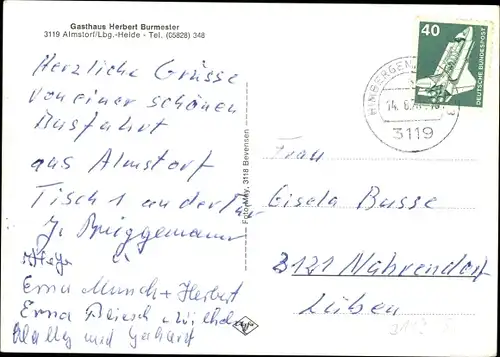 Gasthaus Herbert Burmester
3119 Almstorf/Lbg.-Heide - Tel. (05828) 348
Herzliche Grüsse
von einer schönen
Busfahrt
aus Almstorf
Tisch 1 an der Tür
J. Brüggemann
Erna Munch + Herbert
Erna
Wally und Gerhard
Foto-May, 3118 Bevensen
Agfa
40
DEUTSCHE BUNDESPOST
HIMBERGEN
14. 6.
3119
Frau
Gisela Busse
3121 Nahrendorf
Lüben